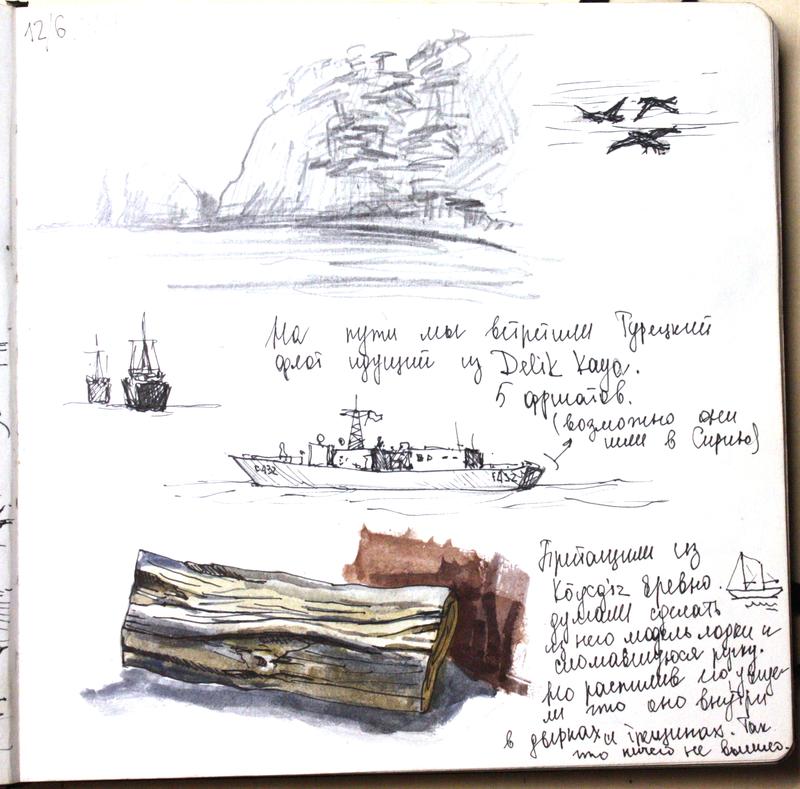 12'6
На пути мы встретили Турецкий
флот идущий из Delik Kaya.
5 фригатов.
(возможно они
шли в Сирию)
F432
F432
Притащили из
Köyceğiz бревно.
думали сделать
из него модель лодки и
сломавшуюся руку.
Но распилив его увиде-
ли что оно внутри
в дырках и трещинах. Так
что ничего не вышло.